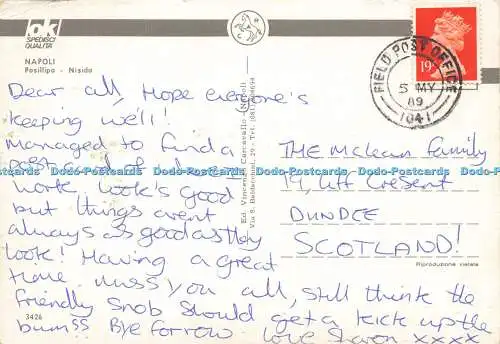 ok
SPEDISCI
QUALITÀ
NAPOLI
Posillipo - Nisida
Dear all, Hope everyone's
keeping well!
Managed to find a
postcard of where I
work look's good
but things arent
always as good as they
look! Having a great
time miss you all, still think the
friendly snob should get a kick up the
bumss Bye forrow. love xxxx
3426
Ed. Vincenzo Carcavallo (Napoli)
Via S. Baldacchini
19
FIELD POST OFFICE
5 MY
89
1041
THE McLean Family
19, Liff Cresent
DUNDEE
SCOTLAND!
Riproduzione vietata
Dodo-Postcards Dodo-Postcards Dodo-Postcards Dodo-Postcards Dodo-Postcards